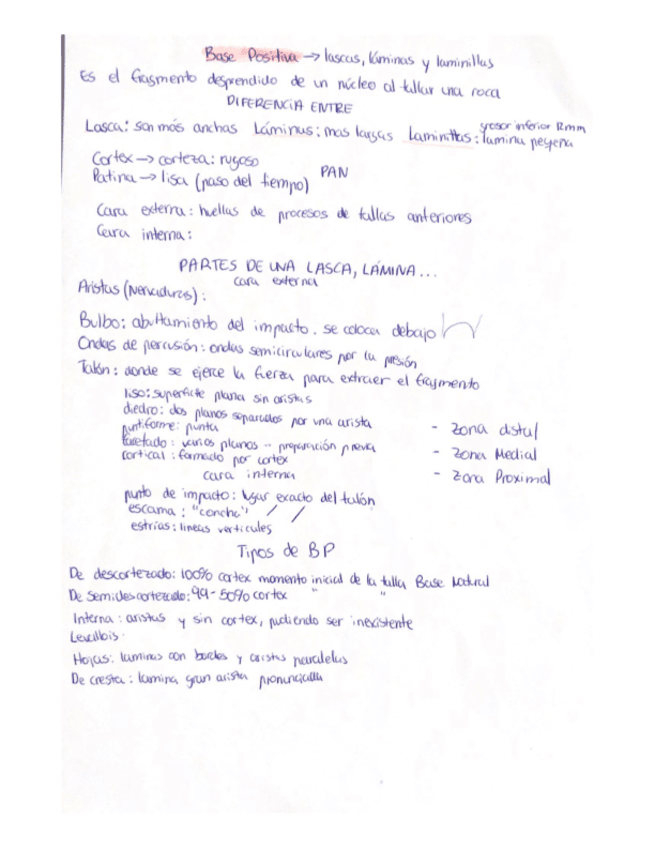 Base Positiva → lascas, láminas y laminillas
Es el fragmento desprendido de un núcleo al tallar una roca
DIFERENCIA ENTRE
grosor inferior 12mm
Lasca: son más anchas Láminas: mas largas Laminillas: lamina pequeña
Cortex → corteza: rugoso
Patina → lisa (paso del tiempo) PAN
Cara externa: huellas de procesos de tallas anteriores
Cara interna:
PARTES DE UNA LASCA, LÁMINA...
cara externa
Aristas (Nervaduras):
Bulbo: abultamiento del impacto. se coloca debajo
Ondas de percusión: ondas semicirculares por la presión
Talón: donde se ejerce la fuerza para extraer el fragmento
liso: superficie plana sin aristas
diedro: dos planos separados por una arista
puntiforme: punta
facetado: varios planos - preparación previa
cortical: formado por cortex
- Zona distal
- Zona Medial
- Zona Proximal
cara interna
punto de impacto: lugar exacto del talón
escama: "concha"
estrías: lineas verticales
Tipos de BP
De descortezado: 100% cortex momento inicial de la talla Base Natural
De Semidescortezado: 99-50% cortex " "
Interna: aristas y sin cortex, pudiendo ser inexistente
Levallois.
Hojas: laminas con bordes y aristas paralelas
De cresta: lamina gran arista pronunciada